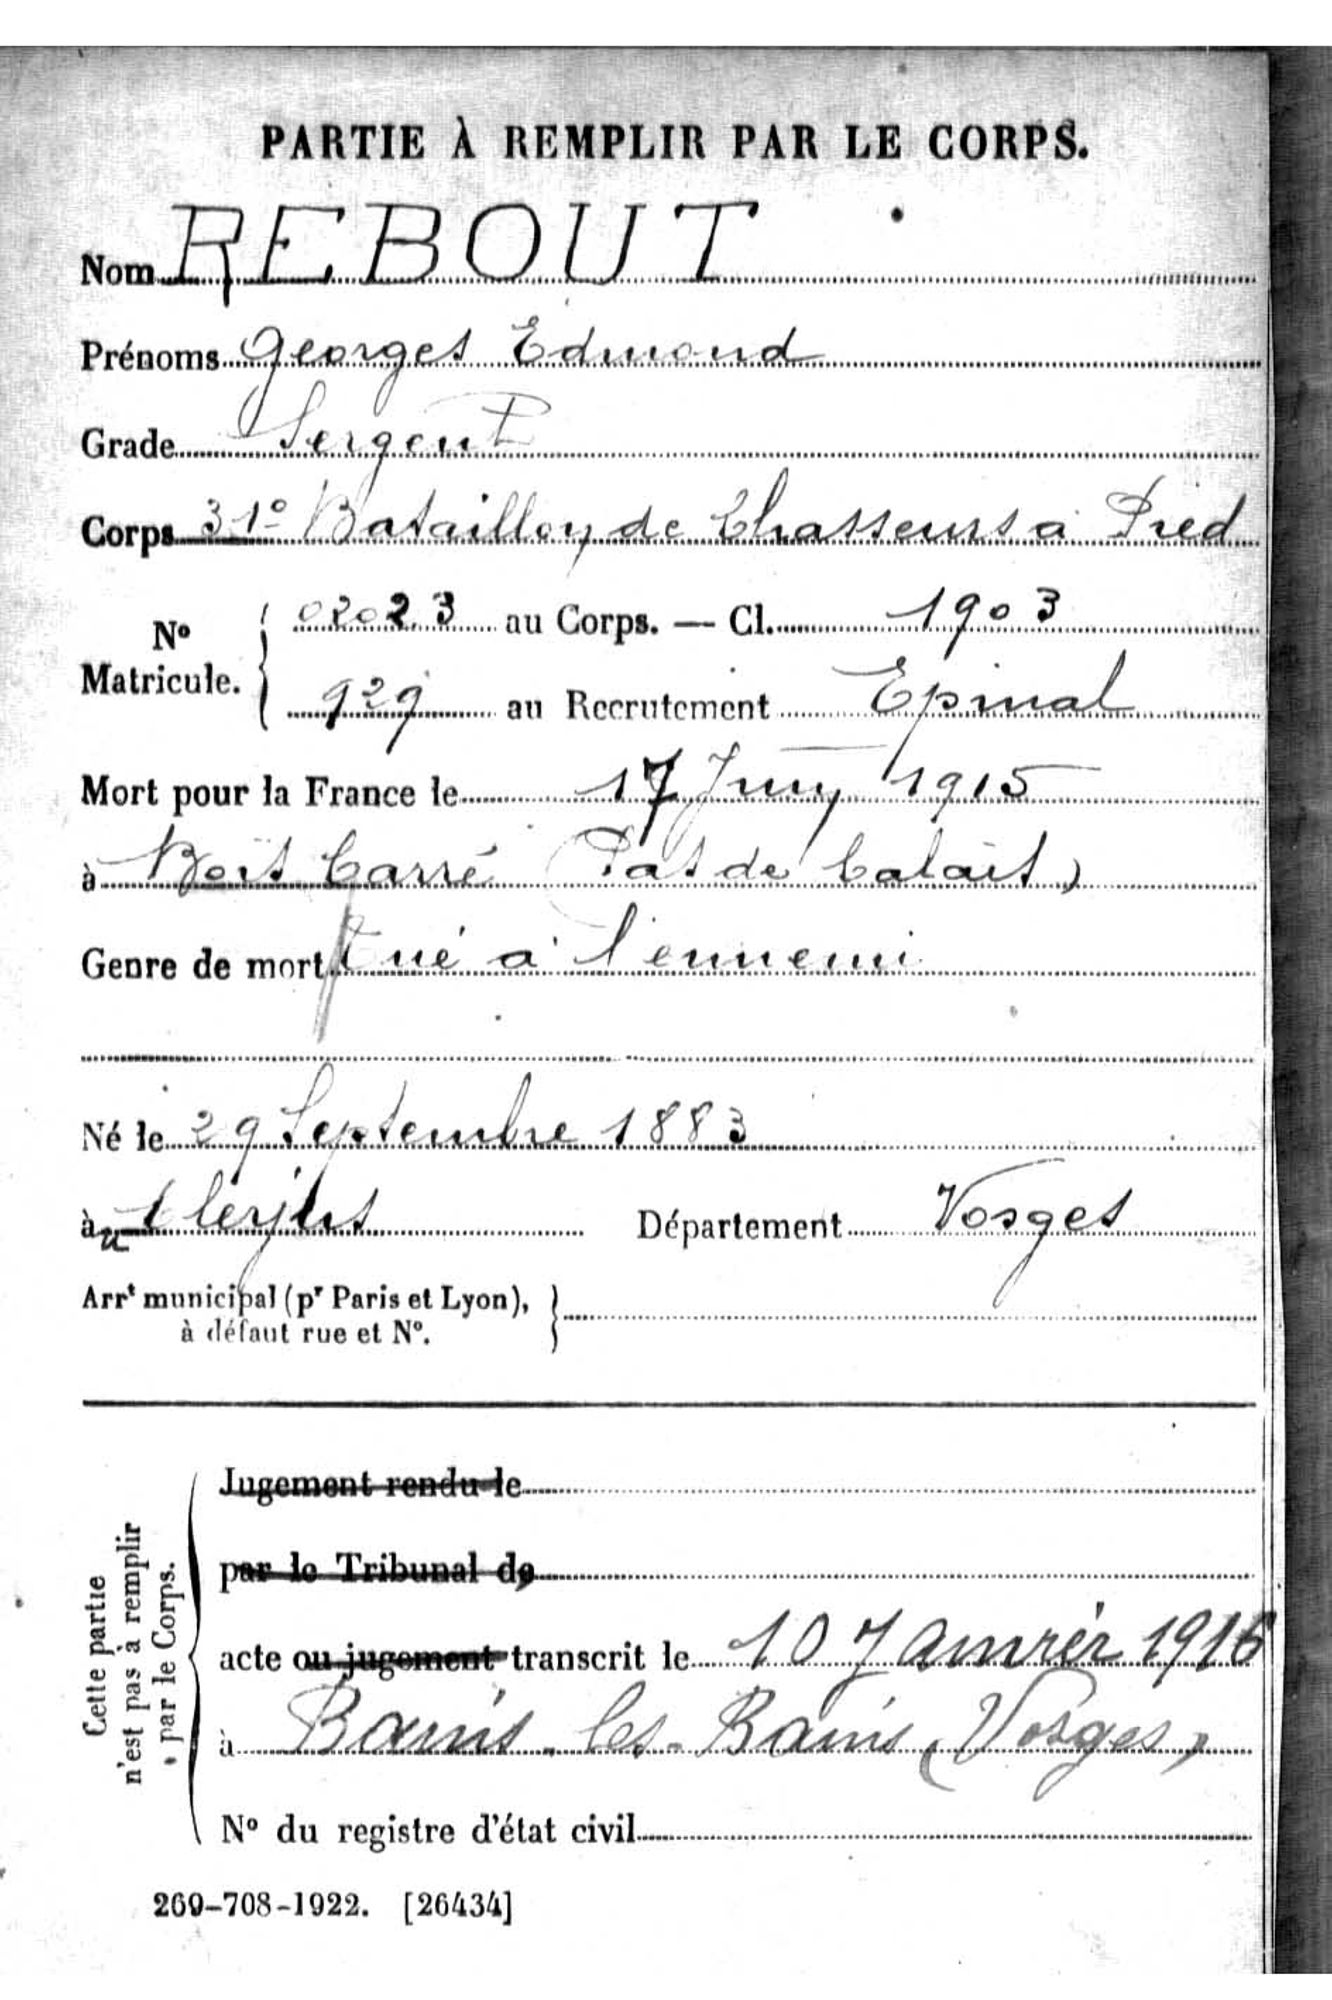 PARTIE À REMPLIR PAR LE CORPS.
Nom REBOUT
Prénoms Georges Edmond
Grade Sergent
Corps 31e Bataillon de Chasseurs à Pied
No Matricule. 02023 au Corps. — Cl. 1903
929 au Recrutement Epinal
Mort pour la France le 17 Juin 1915
à Bois Carré (Pas de Calais)
Genre de mort Tué à l'ennemi
Né le 29 Septembre 1883
à Clerjus Département Vosges
Arrt municipal (pr Paris et Lyon),
à défaut rue et No.
Cette partie
n'est pas à remplir
par le Corps.
Jugement rendu le
par le Tribunal de
acte ou jugement transcrit le 10 Janvier 1916
à Bains-les-Bains (Vosges)
No du registre d'état civil
269-708-1922. [26434]